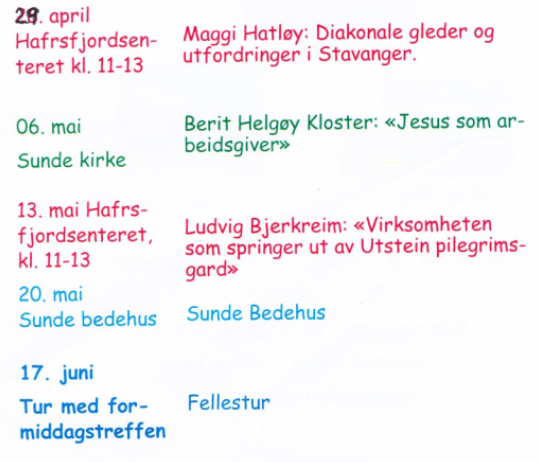 29. april
Hafrsfjordsen-
teret kl. 11-13
Maggi Hatløy: Diakonale gleder og
utfordringer i Stavanger.
06. mai
Sunde kirke
Berit Helgøy Kloster: «Jesus som ar-
beidsgiver»
13. mai Hafrs-
fjordsenteret,
kl. 11-13
Ludvig Bjerkreim: «Virksomheten
som springer ut av Utstein pilegrims-
gard»
20. mai
Sunde bedehus
Sunde Bedehus
17. juni
Tur med for-
middagstreffen
Fellestur